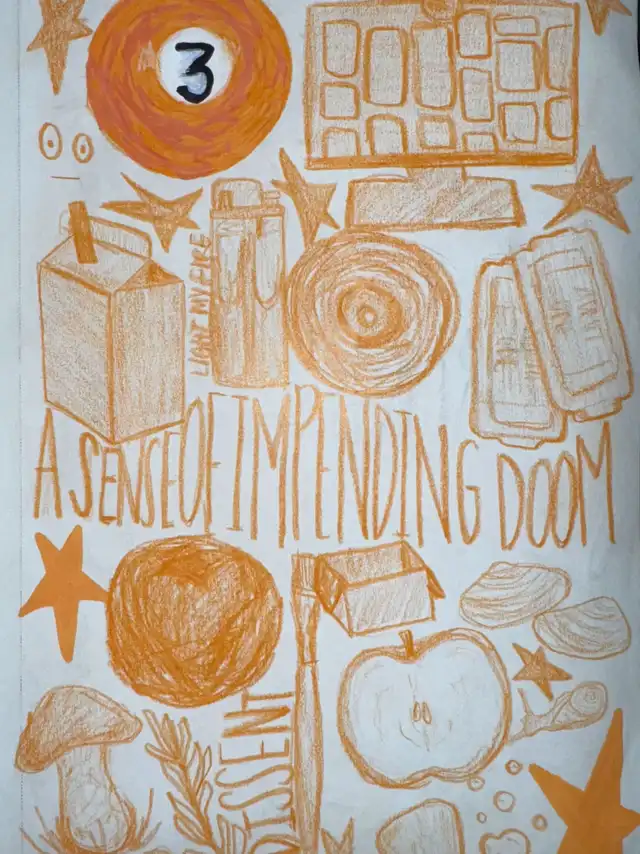 3
LIGHT MY FIRE
A SENSE OF IMPENDING DOOM
DISSENT